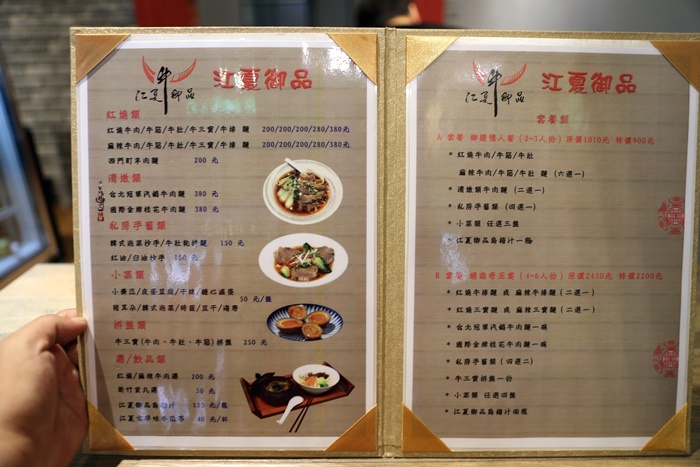 江夏 牛 御品
江夏御品
紅燒類
紅燒牛肉/牛筋/牛肚/牛三寶/牛排 麵 200/200/200/280/380元
麻辣牛肉/牛筋/牛肚/牛三寶/牛排 麵 200/200/200/280/380元
西門町羊肉麵 200 元
清燉類
台北冠軍汽鍋牛肉麵 380 元
國際金牌桂花牛肉麵 380 元
私房手醬類
韓式泡菜抄手/牛肚乾拌麵 150 元
紅油/白油抄手 150 元
小菜類
小黃瓜/皮蛋豆腐/干絲/糖心滷蛋
50 元/盤
豬耳朵/韓式泡菜/時蔬/豆干/海帶
拼盤類
牛三寶(牛肉、牛肚、牛筋)拼盤 250 元
湯/飲品類
紅燒/麻辣牛肉湯 200 元
新竹貢丸湯 50 元
江夏御品烏梅汁 元/瓶
江夏 冬瓜茶 40 元/杯
江夏 牛 御品
江夏御品
套餐類
A 套餐 情人餐 (2-3人份) 原價1010元 特價900元
* 紅燒牛肉/牛筋/牛肚
麻辣牛肉/牛筋/牛肚 麵 (六選一)
* 清燉類牛肉麵 (二選一)
* 私房手醬類 (四選一)
* 小菜類 任選三盤
* 江夏御品烏梅汁一瓶
B 套餐 (4-6人份) 原價2410元 特價2200元
* 紅燒牛排麵 或 麻辣牛排麵 (二選一)
* 紅燒三寶麵 或 麻辣三寶麵 (二選一)
* 台北冠軍汽鍋牛肉麵一碗
* 國際金牌桂花牛肉麵一碗
* 私房手醬類 (四選二)
* 牛三寶拼盤一份
* 小菜類 任選四盤
* 江夏御品烏梅汁兩瓶